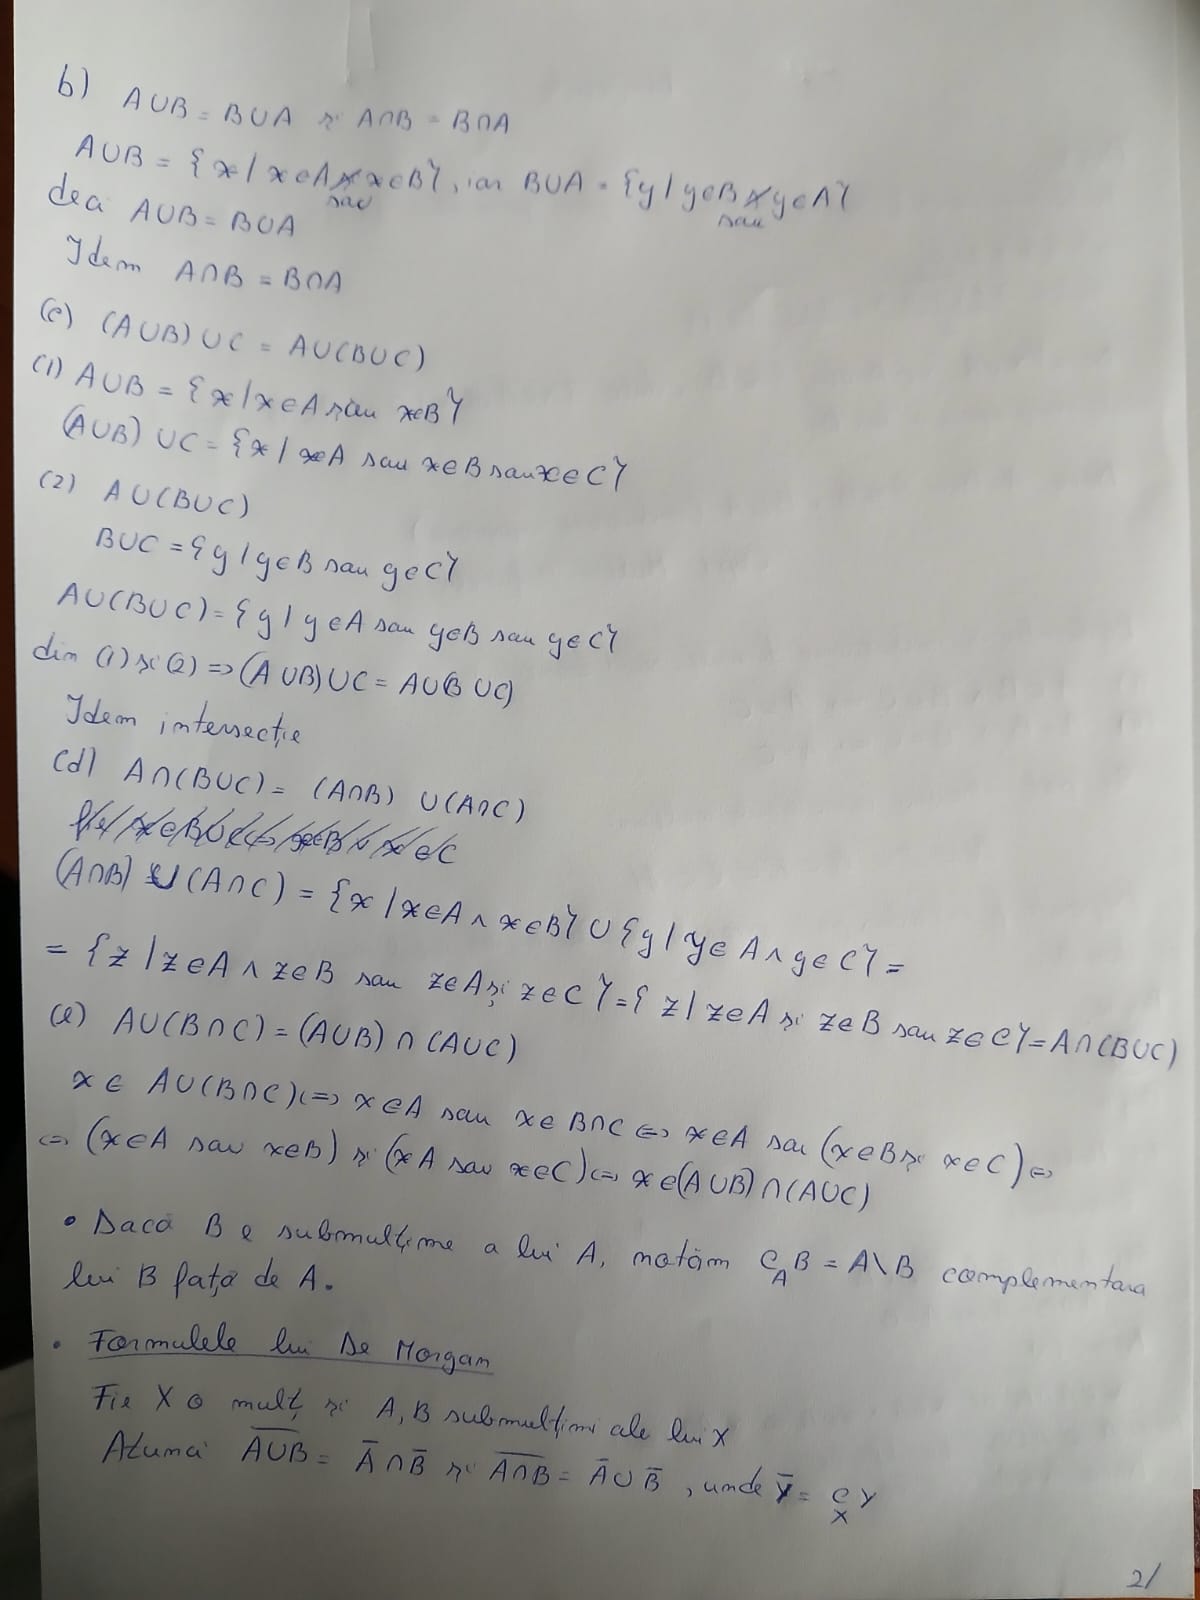 b) A∪B = B∪A și A∩B = B∩A
A∪B = {x / x∈A sau x∈B}, iar B∪A = {y / y∈B sau y∈A}
deci A∪B = B∪A
Idem A∩B = B∩A
(c) (A∪B)∪C = A∪(B∪C)
(1) A∪B = {x / x∈A sau x∈B}
(A∪B)∪C = {x / x∈A sau x∈B sau x∈C}
(2) A∪(B∪C)
B∪C = {y / y∈B sau y∈C}
A∪(B∪C) = {y / y∈A sau y∈B sau y∈C}
din (1) și (2) => (A∪B)∪C = A∪(B∪C)
Idem intersecție
(d) A∩(B∪C) = (A∩B) ∪(A∩C)
(A∩B) ∪ (A∩C) = {x / x∈A ∧ x∈B} ∪ {y / y∈A ∧ y∈C} =
= {z / z∈A ∧ z∈B sau z∈A și z∈C} = { z / z∈A și z∈B sau z∈C} = A∩(B∪C)
(e) A∪(B∩C) = (A∪B) ∩ (A∪C)
x ∈ A∪(B∩C) <=> x∈A sau x∈B∩C <=> x∈A sau (x∈B și x∈C) <=>
<=> (x∈A sau x∈B) și (x A sau x∈C) <=> x∈(A∪B)∩(A∪C)
• Dacă B e submulțime a lui A, notăm C_A B = A\B complementara
lui B față de A.
• Formulele lui De Morgan
Fie X o mulț și A, B submulțimi ale lui X
Atunci A̅∪̅B̅ = A̅ ∩ B̅ și A̅∩̅B̅ = A̅ ∪ B̅, unde Y̅ = C_X Y
2/